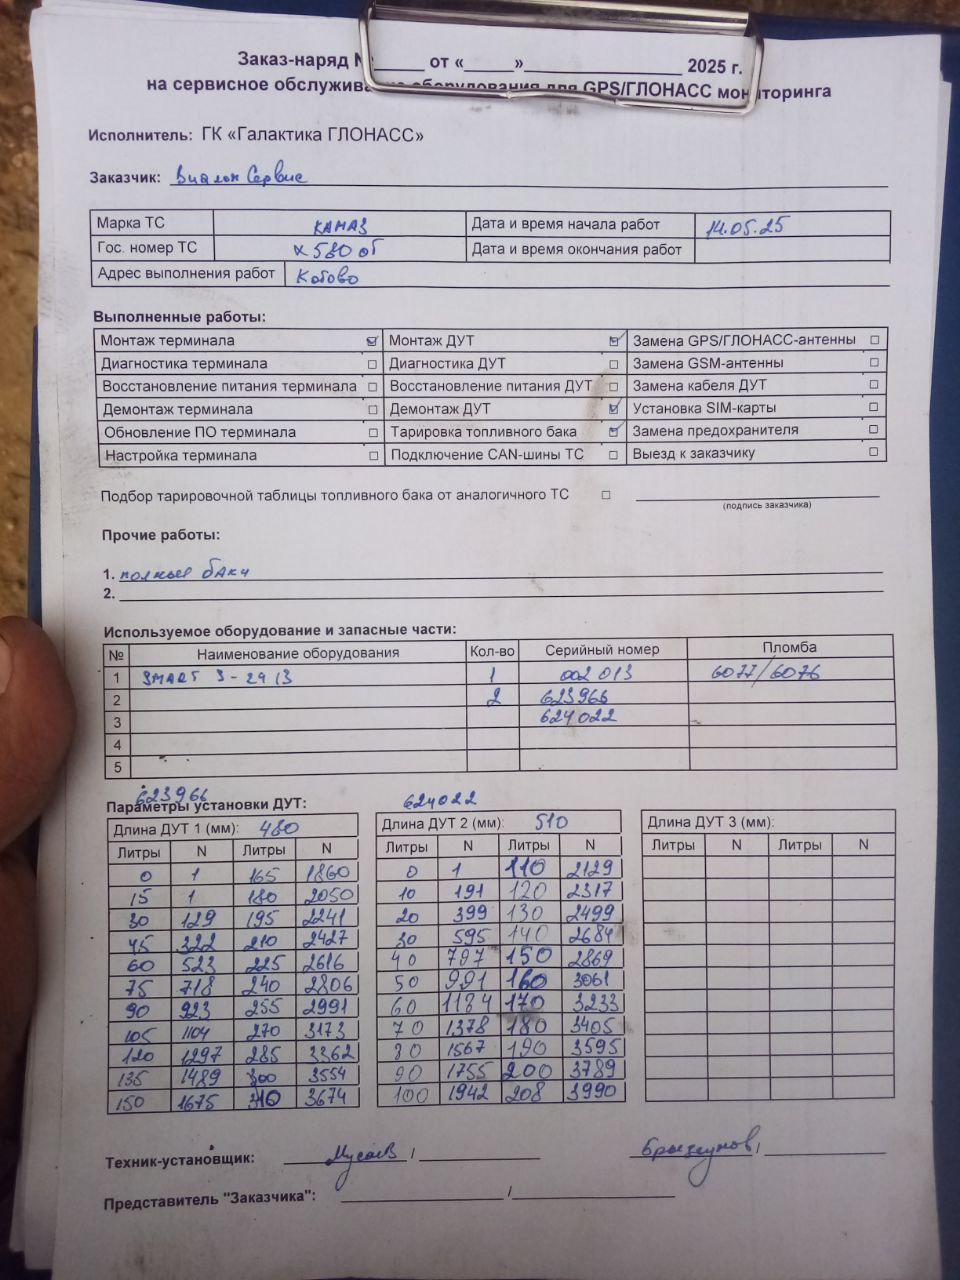 Заказ-наряд №_____ от «_____»________________ 2025 г.
на сервисное обслуживание оборудования для GPS/ГЛОНАСС мониторинга
Исполнитель: ГК «Галактика ГЛОНАСС»
Заказчик: Виалон Сервис
Марка ТС КАМАЗ Дата и время начала работ 14.05.25
Гос. номер ТС х 580 об Дата и время окончания работ
Адрес выполнения работ Котово
Выполненные работы:
Монтаж терминала ☑ Монтаж ДУТ ☑ Замена GPS/ГЛОНАСС-антенны ☐
Диагностика терминала ☐ Диагностика ДУТ ☐ Замена GSM-антенны ☐
Восстановление питания терминала ☐ Восстановление питания ДУТ ☐ Замена кабеля ДУТ ☐
Демонтаж терминала ☐ Демонтаж ДУТ ☑ Установка SIM-карты ☐
Обновление ПО терминала ☐ Тарировка топливного бака ☑ Замена предохранителя ☐
Настройка терминала ☐ Подключение CAN-шины ТС ☐ Выезд к заказчику ☐
Подбор тарировочной таблицы топливного бака от аналогичного ТС ☐
(подпись заказчика)
Прочие работы:
1. полные баки
2.
Используемое оборудование и запасные части:
№ Наименование оборудования Кол-во Серийный номер Пломба
1 SMART S-2413 1 002013 6077/6076
2 2 623966
3 624022
4
5
623966 624022
Параметры установки ДУТ:
Длина ДУТ 1 (мм): 480 Длина ДУТ 2 (мм): 510 Длина ДУТ 3 (мм):
Литры N Литры N Литры N Литры N Литры N Литры N
0 1 165 1860 0 1 110 2129
15 1 180 2050 10 191 120 2317
30 129 195 2241 20 399 130 2499
45 322 210 2427 30 595 140 2684
60 523 225 2616 40 797 150 2869
75 718 240 2806 50 991 160 3061
90 923 255 2991 60 1184 170 3233
105 1104 270 3173 70 1378 180 3405
120 1297 285 3362 80 1567 190 3595
135 1489 300 3554 90 1755 200 3789
150 1675 310 3674 100 1942 208 3990
Техник-установщик: Мусаев /
Представитель "Заказчика": /